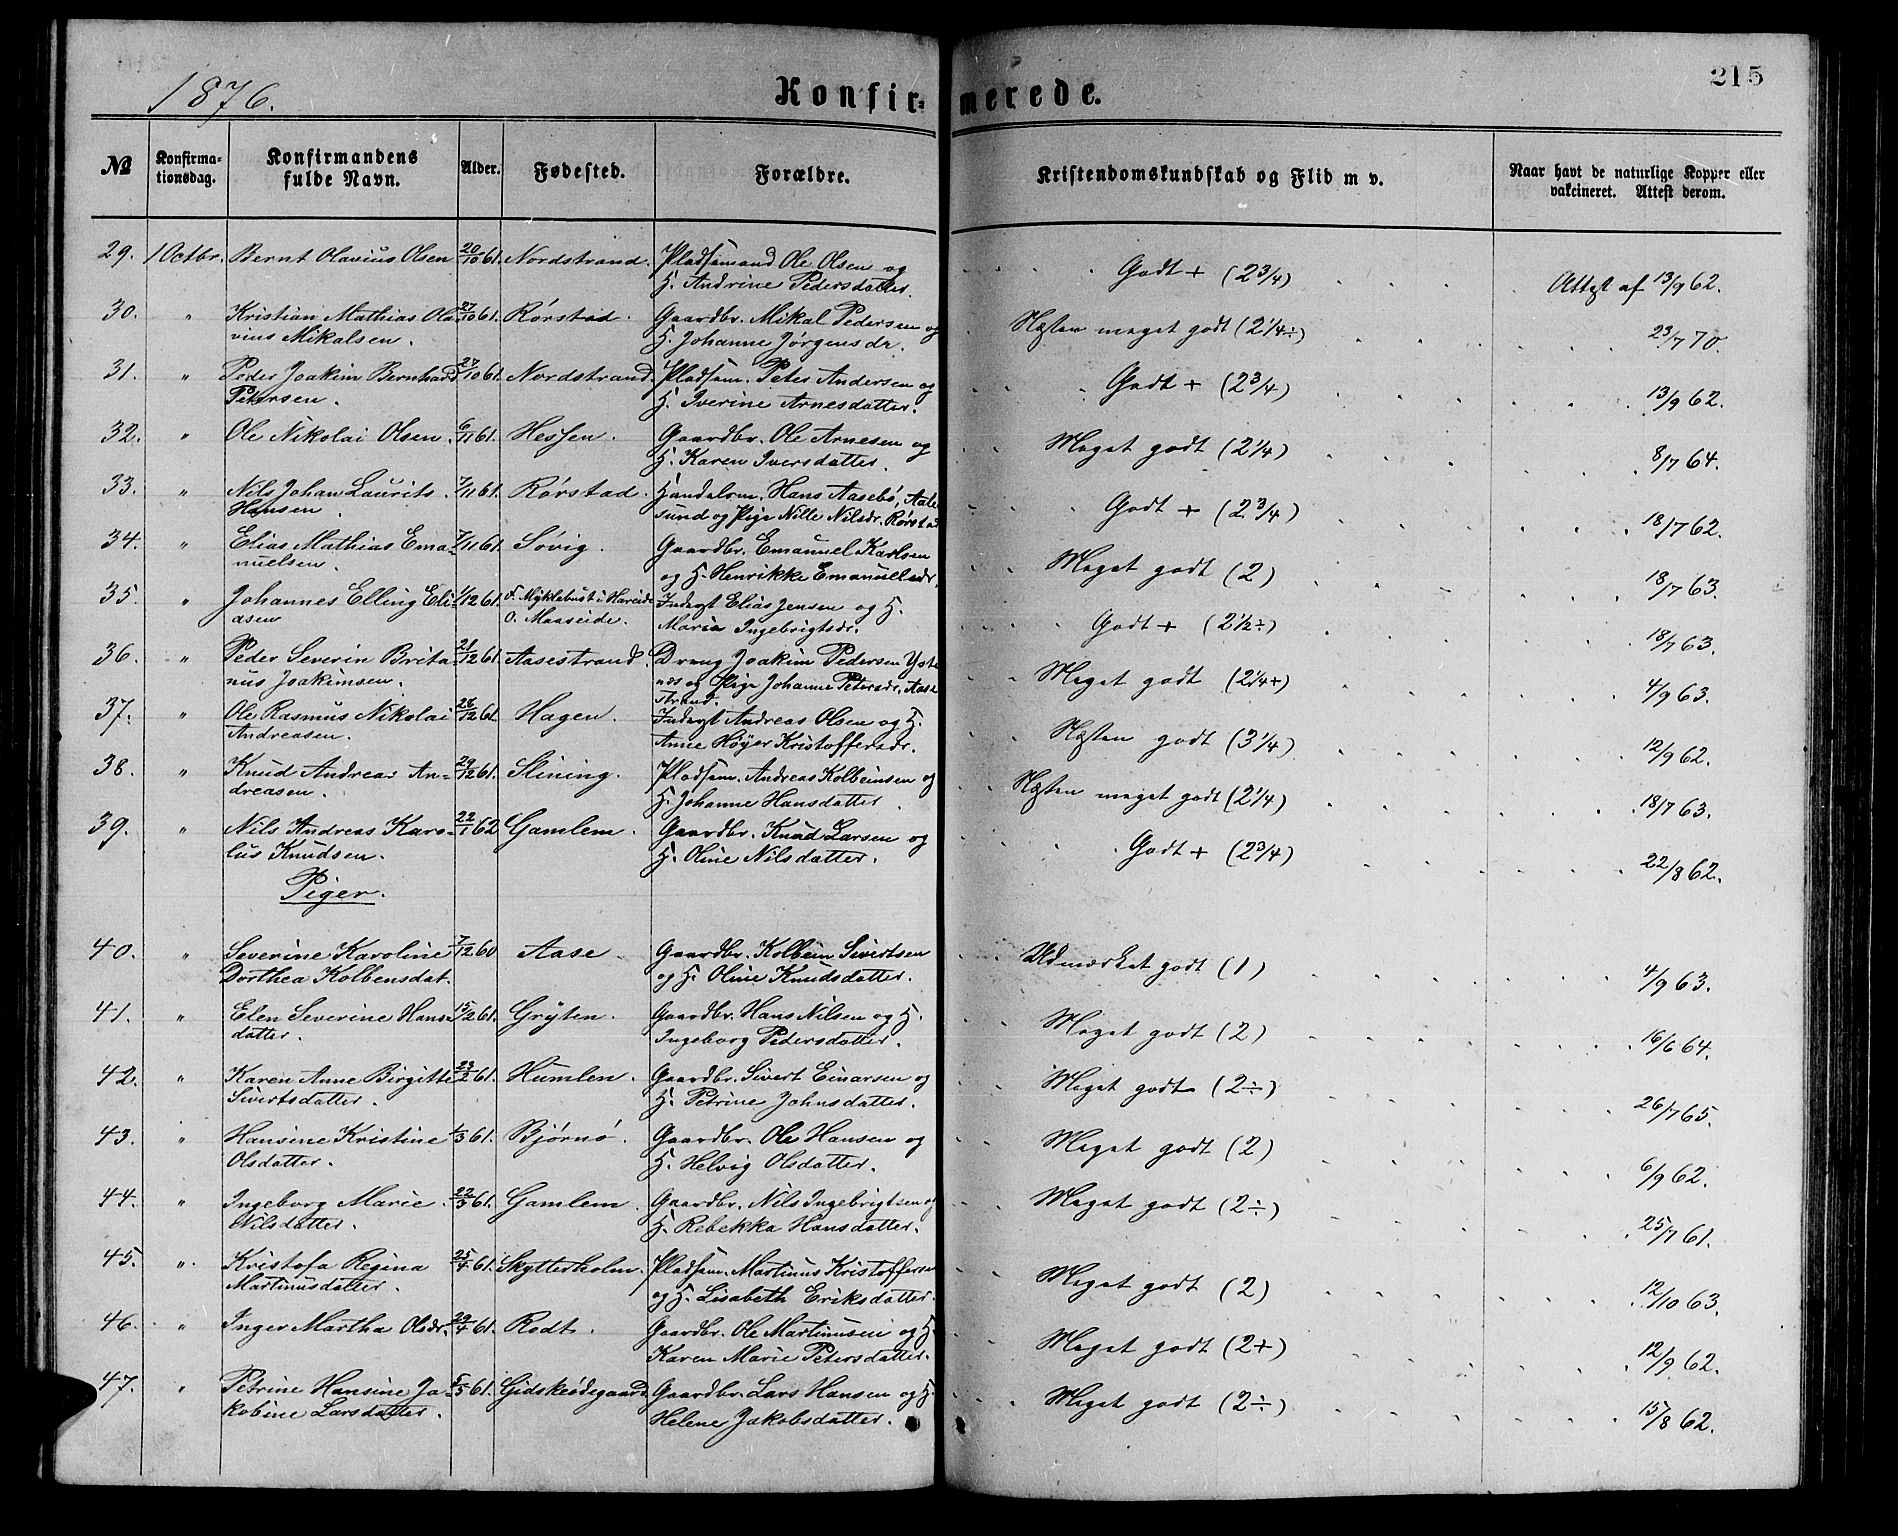 1876.
Konfir-
merede.
215
№
Konfirma-
tionsdag.
Konfirmandens
fulde Navn.
Alder.
Fødested.
Forældre.
Kristendomskundskab og Flid m v.
Naar havt de naturlige Kopper eller
vakcineret. Attest derom.
29. 1 Octbr. Bernt Olavius Olsen 20/10 61. Nordstrand. Pladsemand Ole Olsen og
H. Andrine Pedersdatter.
Godt + (2 3/4) Attest af 13/9 62.
30. " Kristian Mathias Ola- 27/10 61. Rørstad. Gaardbr. Mikal Pedersen og
vius Mikalsen. H. Johanne Jørgensdr.
Næsten meget godt (2 1/4 ÷) 23/7 70.
31. " Peder Joakim Bernhard 27/10 61. Nordstrand. Pladsem. Peter Andersen og
Petersen. H. Iverine Arnesdatter.
Godt + (2 3/4) 13/9 62.
32. " Ole Nikolai Olsen. 6/11 61. Hessen. Gaardbr. Ole Arnesen og
H. Karen Iversdatter.
Meget godt (2 1/4) 8/7 64.
33. " Nils Johan Laurits 7/11 61. Rørstad. Handelsm. Hans Aasebø, Aale-
Hansen. sund og Pige Nille Nilsdr. Rørstad
Godt + (2 3/4) 18/7 62.
34. " Elias Mathias Ema- 7/11 61. Søvig. Gaardbr. Emanuel Karlsen
nuelsen. og H. Henrikke Emanuelsdr.
Meget godt (2) 18/7 63.
35. " Johannes Elling Eli- 1/12 61. F. Myklebust i Hareide Inderst Elias Jensen og H.
asen O. Maaseide. Marie Ingebrigtsdr.
Godt + (2 1/2 ÷) 18/7 63.
36. " Peder Severin Brita- 21/12 61. Aasestrand. Dreng Joakim Pedersen Yste-
nus Joakimsen. næs og Pige Johanne Petersdr. Aase-
strand.
Meget godt (2 1/4 +) 4/9 63.
37. " Ole Rasmus Nikolai 28/12 61 Hagen. Inderst Andreas Olsen og H.
Andreasen. Anne Høyer Kristoffersdr.
Næsten godt (3 1/4) 12/9 62.
38. " Knud Andreas An- 29/12 61. Slining. Pladsem. Andreas Kolbeinsen og
dreasen. H. Johanne Hansdatter.
Næsten meget godt (2 1/4) 18/7 63.
39. " Nils Andreas Karo- 22/1 62 Gamlem. Gaardbr. Knud Larsen og
lus Knudsen. H. Oline Nilsdatter.
Godt + (2 3/4) 22/8 62.
Piger.
40. " Severine Karoline 7/12 60 Aase. Gaardbr. Kolbein Sivertsen
Dorthea Kolbensdat. og H. Oline Knudsdatter.
Udmærket godt (1) 4/9 63.
41. " Elen Severine Hans- 15/2 61. Gryten. Gaardbr. Hans Nilsen og H.
datter. Ingeborg Pedersdatter.
Meget godt (2) 16/6 64.
42. " Karen Anne Birgitte 23/2 61. Humlen. Gaardbr. Sivert Einarsen og
Sivertsdatter. H. Petrine Johnsdatter.
Meget godt (2 ÷) 26/7 65.
43. " Hansine Kristine 1/3 61. Bjørnø. Gaardbr. Ole Hansen og
Olsdatter. H. Helvig Olsdatter.
Meget godt (2) 6/9 62.
44. " Ingeborg Marie 22/3 61. Gamlem. Gaardbr. Nils Ingebrigtsen og
Nilsdatter. H. Rebekka Hansdatter.
Meget godt (2 ÷) 25/7 61.
45. " Kristofa Regina 25/4 61. Skytterholm. Pladsem. Martinus Kristoffersen
Martinusdatter. og H. Lisabeth Eriksdatter.
Meget godt (2) 12/10 63.
46. " Inger Martha Olsdr. 29/4 61. Rødt. Gaardbr. Ole Martinusen og H.
Karen Marie Petersdatter.
Meget godt (2 +) 12/9 62.
47. " Petrine Hansine Ja- 5/5 61. Gidskeødegaard. Gaardbr. Lars Hansen og H.
kobine Larsdatter. Helene Jakobsdatter.
Meget godt (2 ÷) 15/8 62.